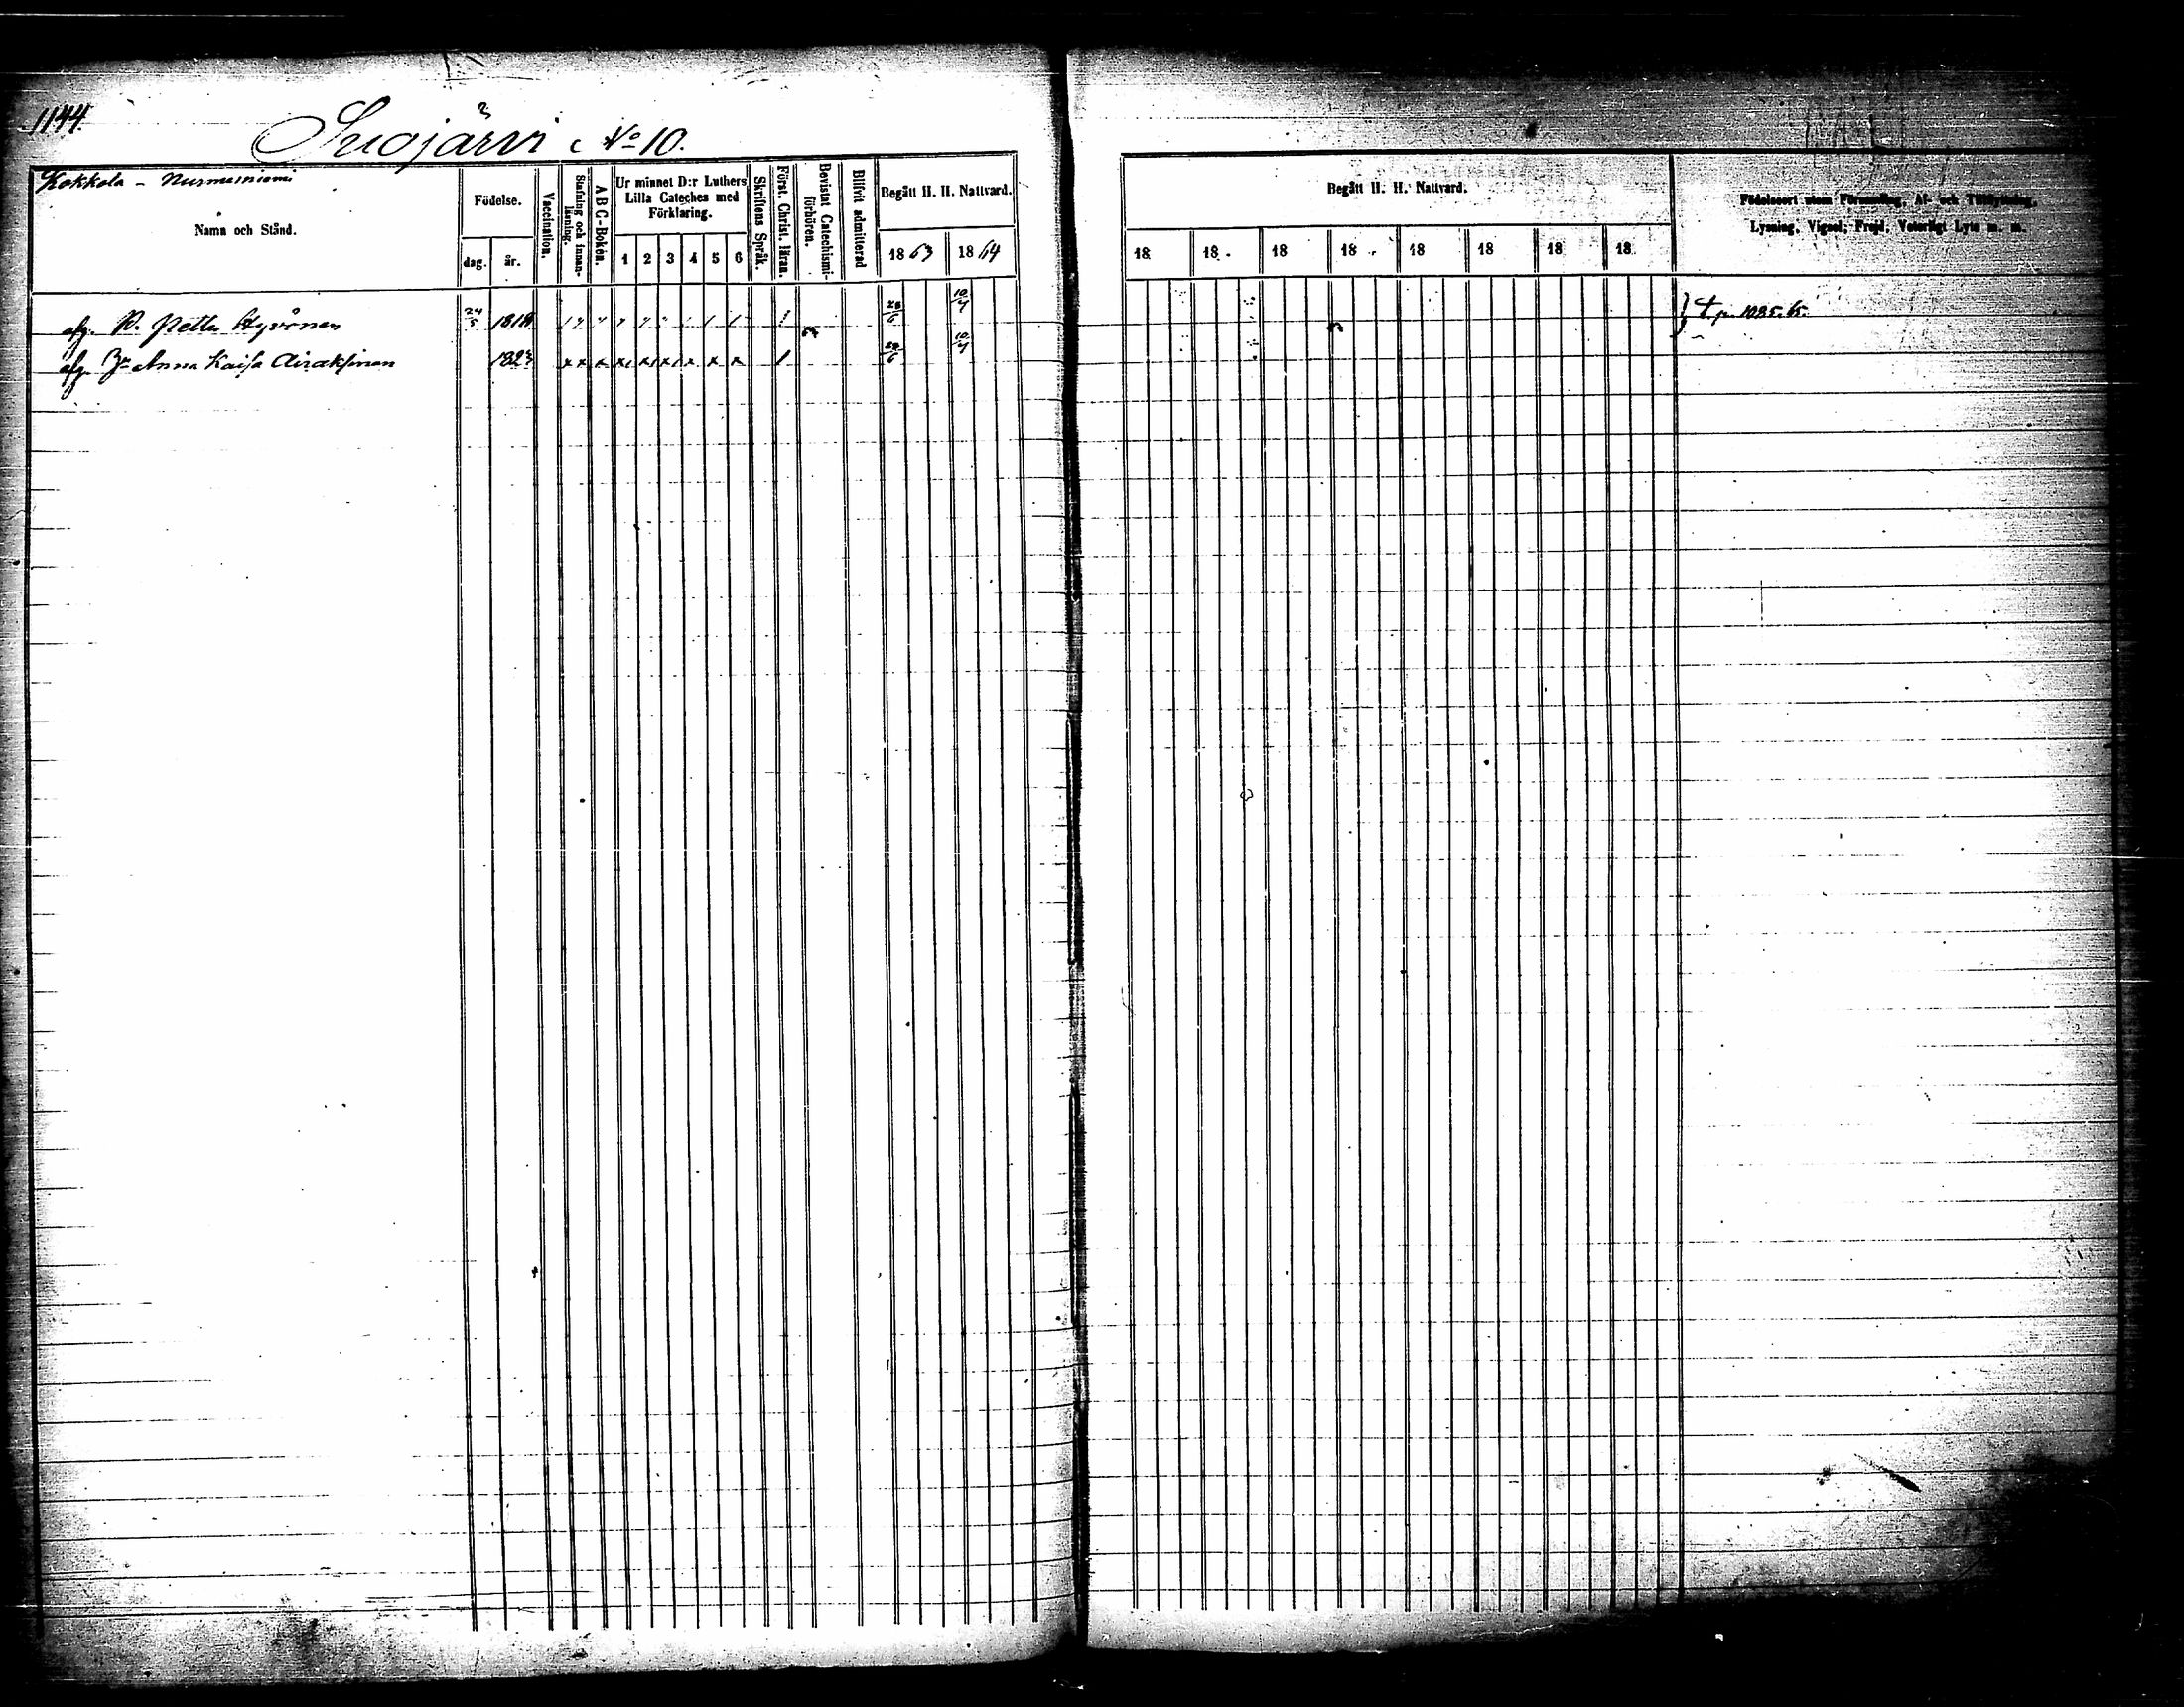 1144.
Suojärvi No 10.
Kokkola - Nurmesniemi
Namn och Stånd.
Födelse.
dag.
år.
Vaccination.
Stafning och innan-
läsning.
A B C-Boken.
Ur minnet D:r Luthers
Lilla Cateches med
Förklaring.
1 2 3 4 5 6
Skriftens Språk.
Först. Christ. Läran.
Bevistat Catechismi-
förhören.
Blifvit admitterad
Begått H. H. Nattvard.
1863 1864
Begått H. H. Nattvard.
18 18 18 18 18 18 18 18
Födelseort utom Församling, Af- och Tillflyttning,
Lysning, Vigsel, Frejd, Veterligt Lyte m. m.
afg. B. Petter Hyvönen 24/5 1818 28/6 10/7 } t. p. 1085. 65.
afg. Hu Anna Kaisa Airaksinen 1823 28/6 10/7